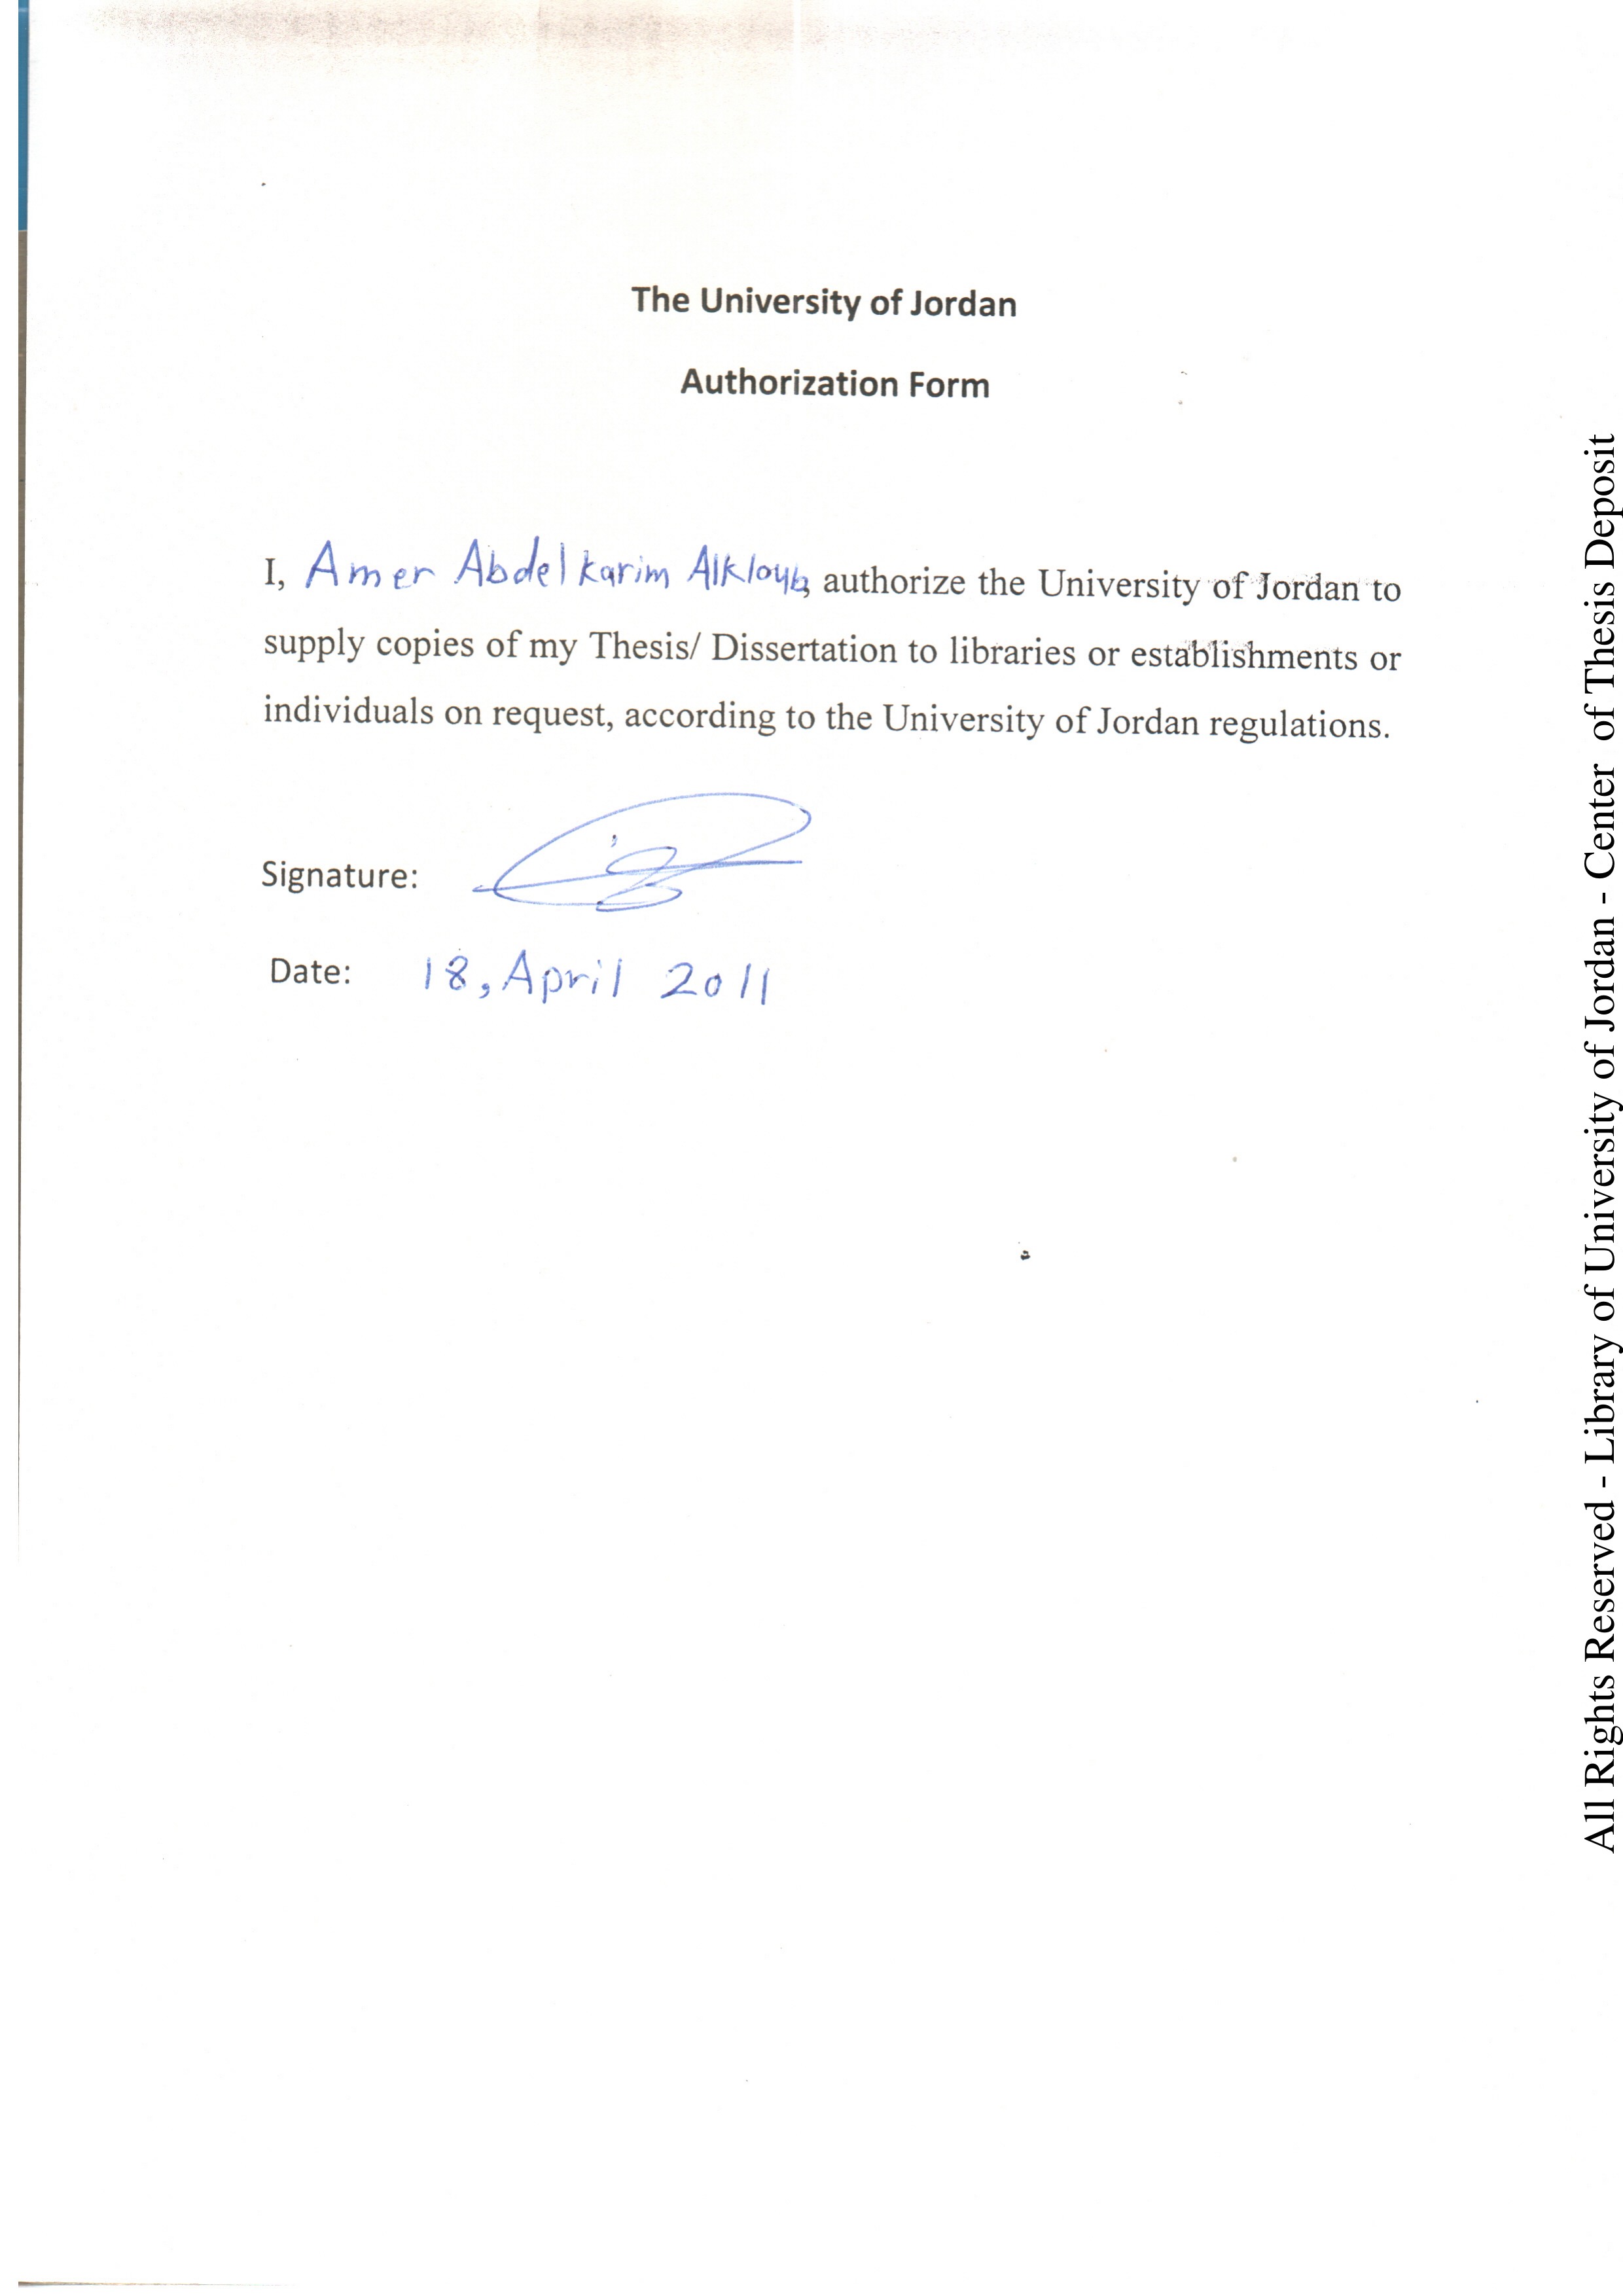 The University of Jordan
Authorization Form
I, Amer Abdelkarim Alkloub, authorize the University of Jordan to
supply copies of my Thesis/ Dissertation to libraries or establishments or
individuals on request, according to the University of Jordan regulations.
Signature:
Date: 18, April 2011
All Rights Reserved - Library of University of Jordan - Center of Thesis Deposit